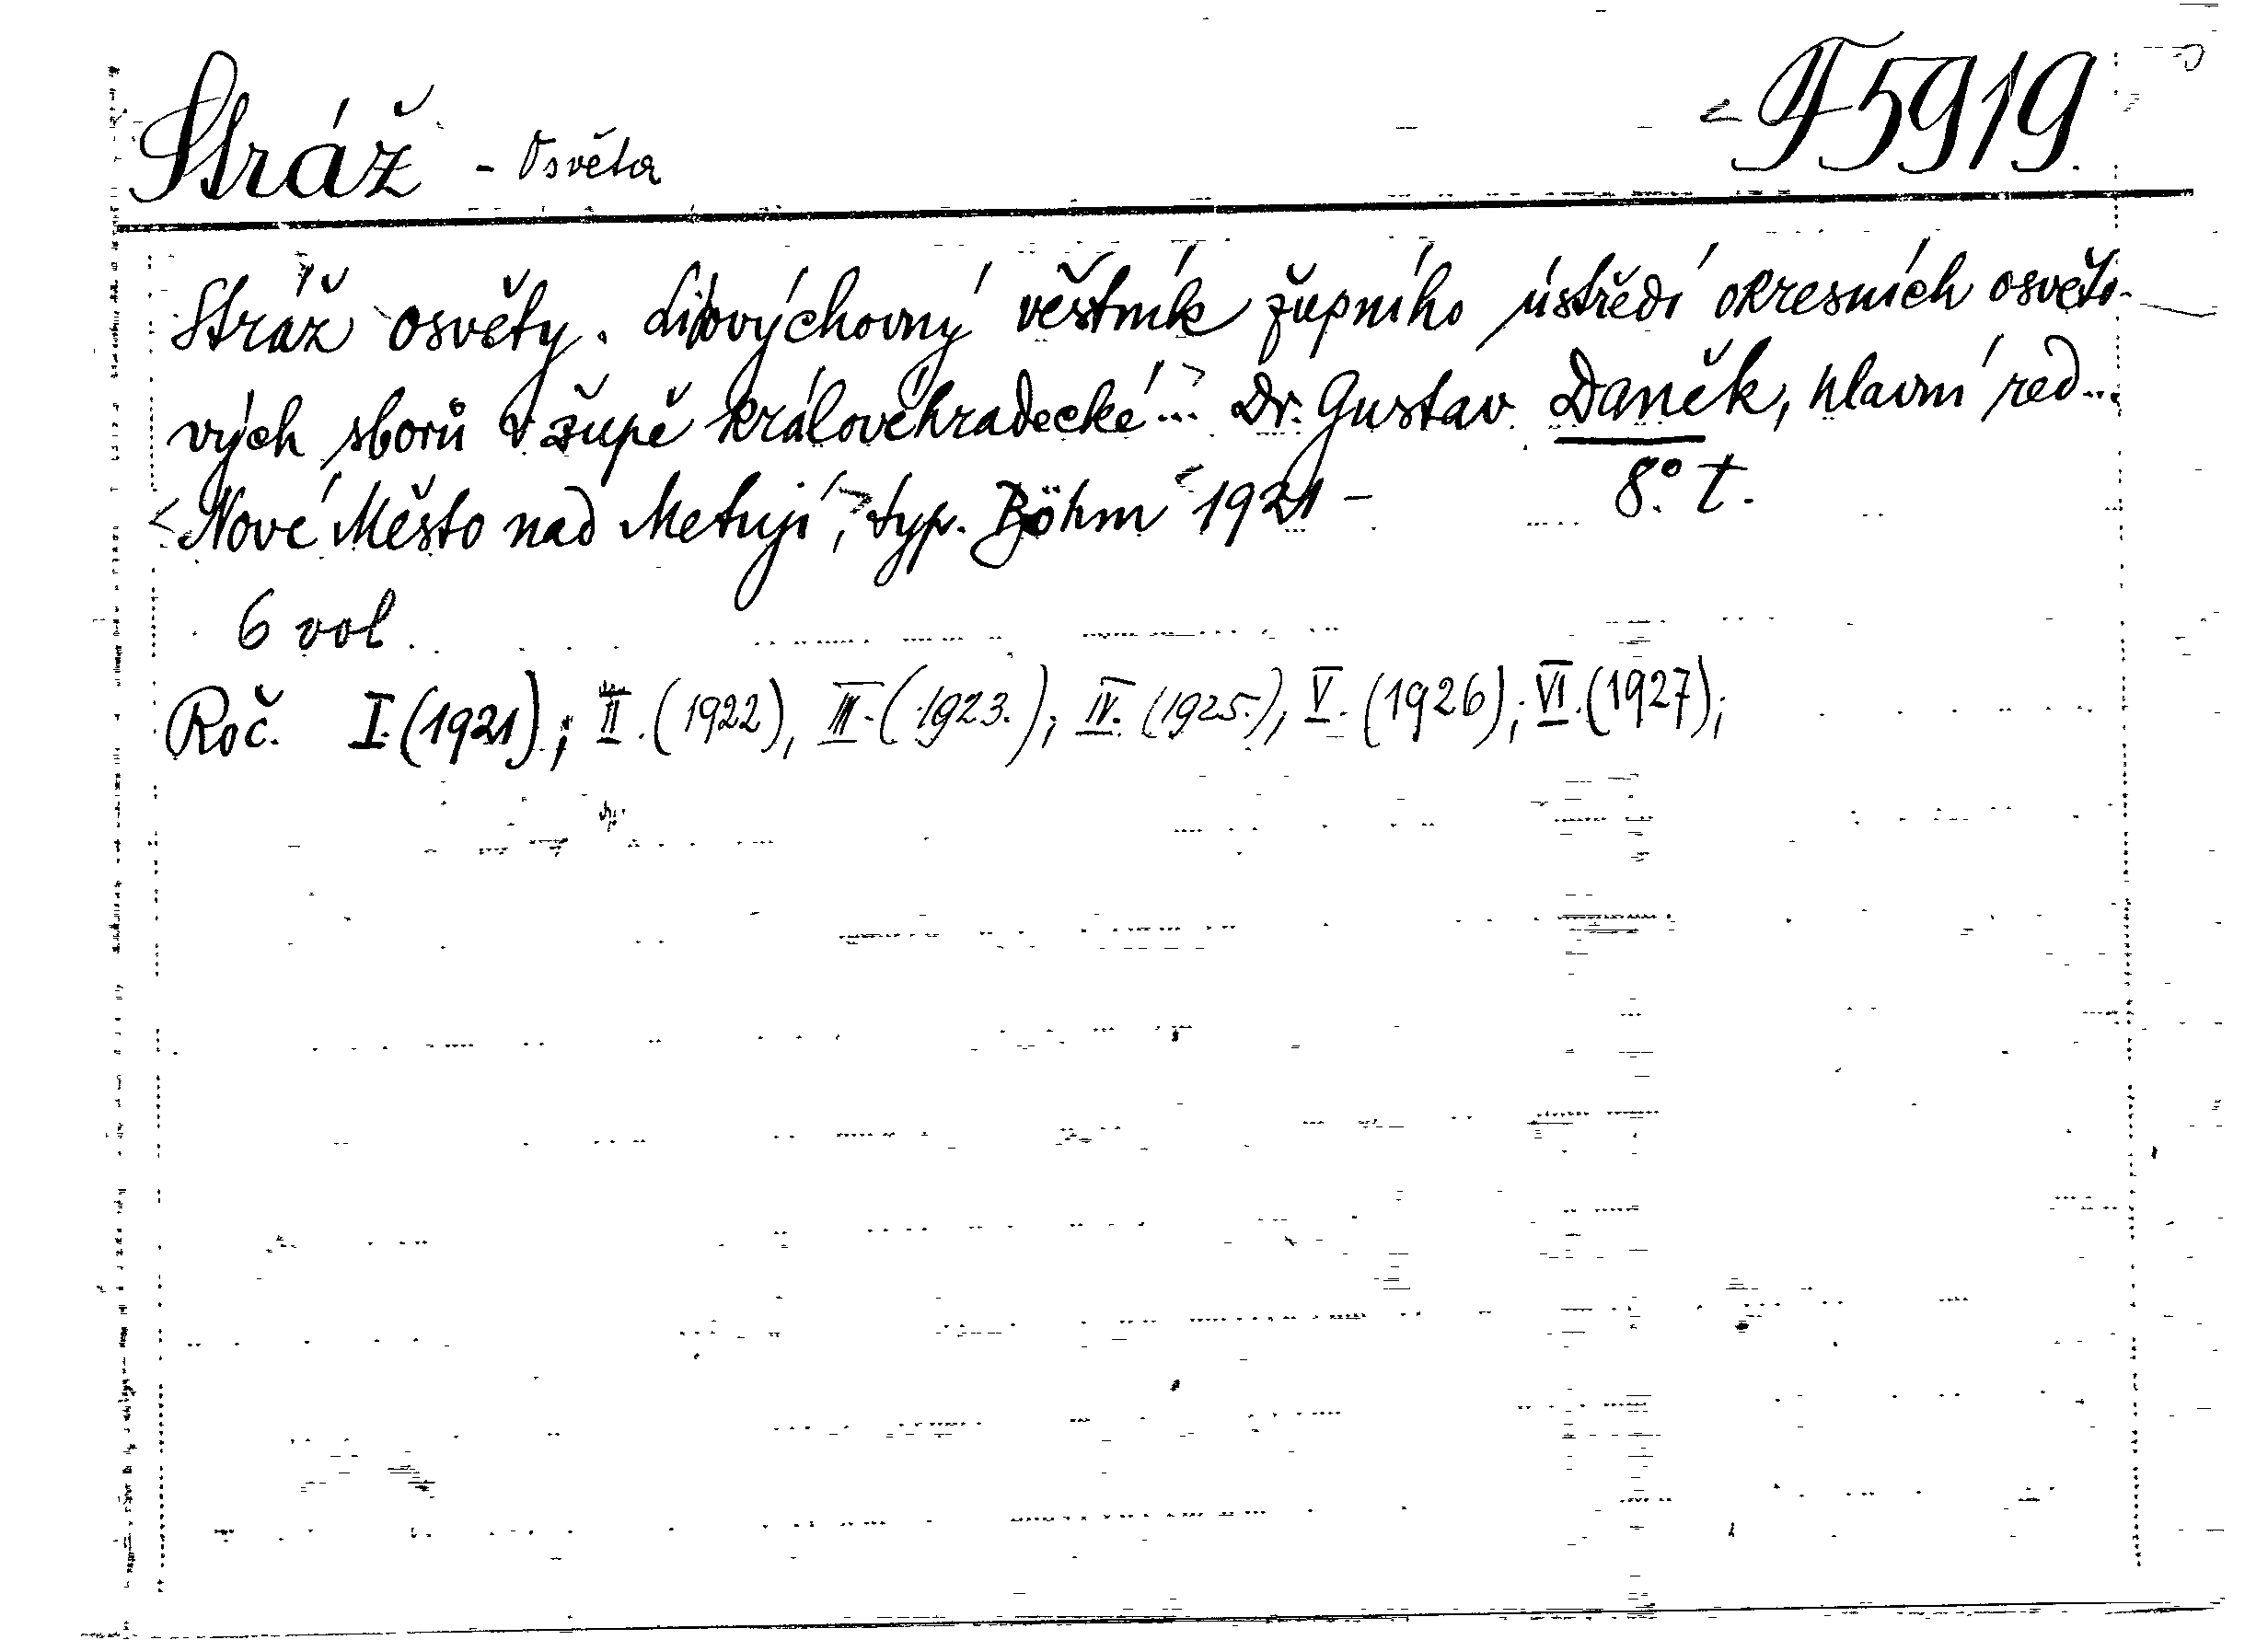 Stráž - Osvěta F 5919.
Stráž osvěty. Lidovýchovný věstník župního ústředí okresních osvěto-
vých sborů v župě královéhradecké... Dr. Gustav Daněk, hlavní red...
Nové Město nad Metují, typ. Böhm 1921 - 8.° t.
6 vol.
Roč. I. (1921); II. (1922), III. (1923.); IV. (1925.), V. (1926); VI. (1927);